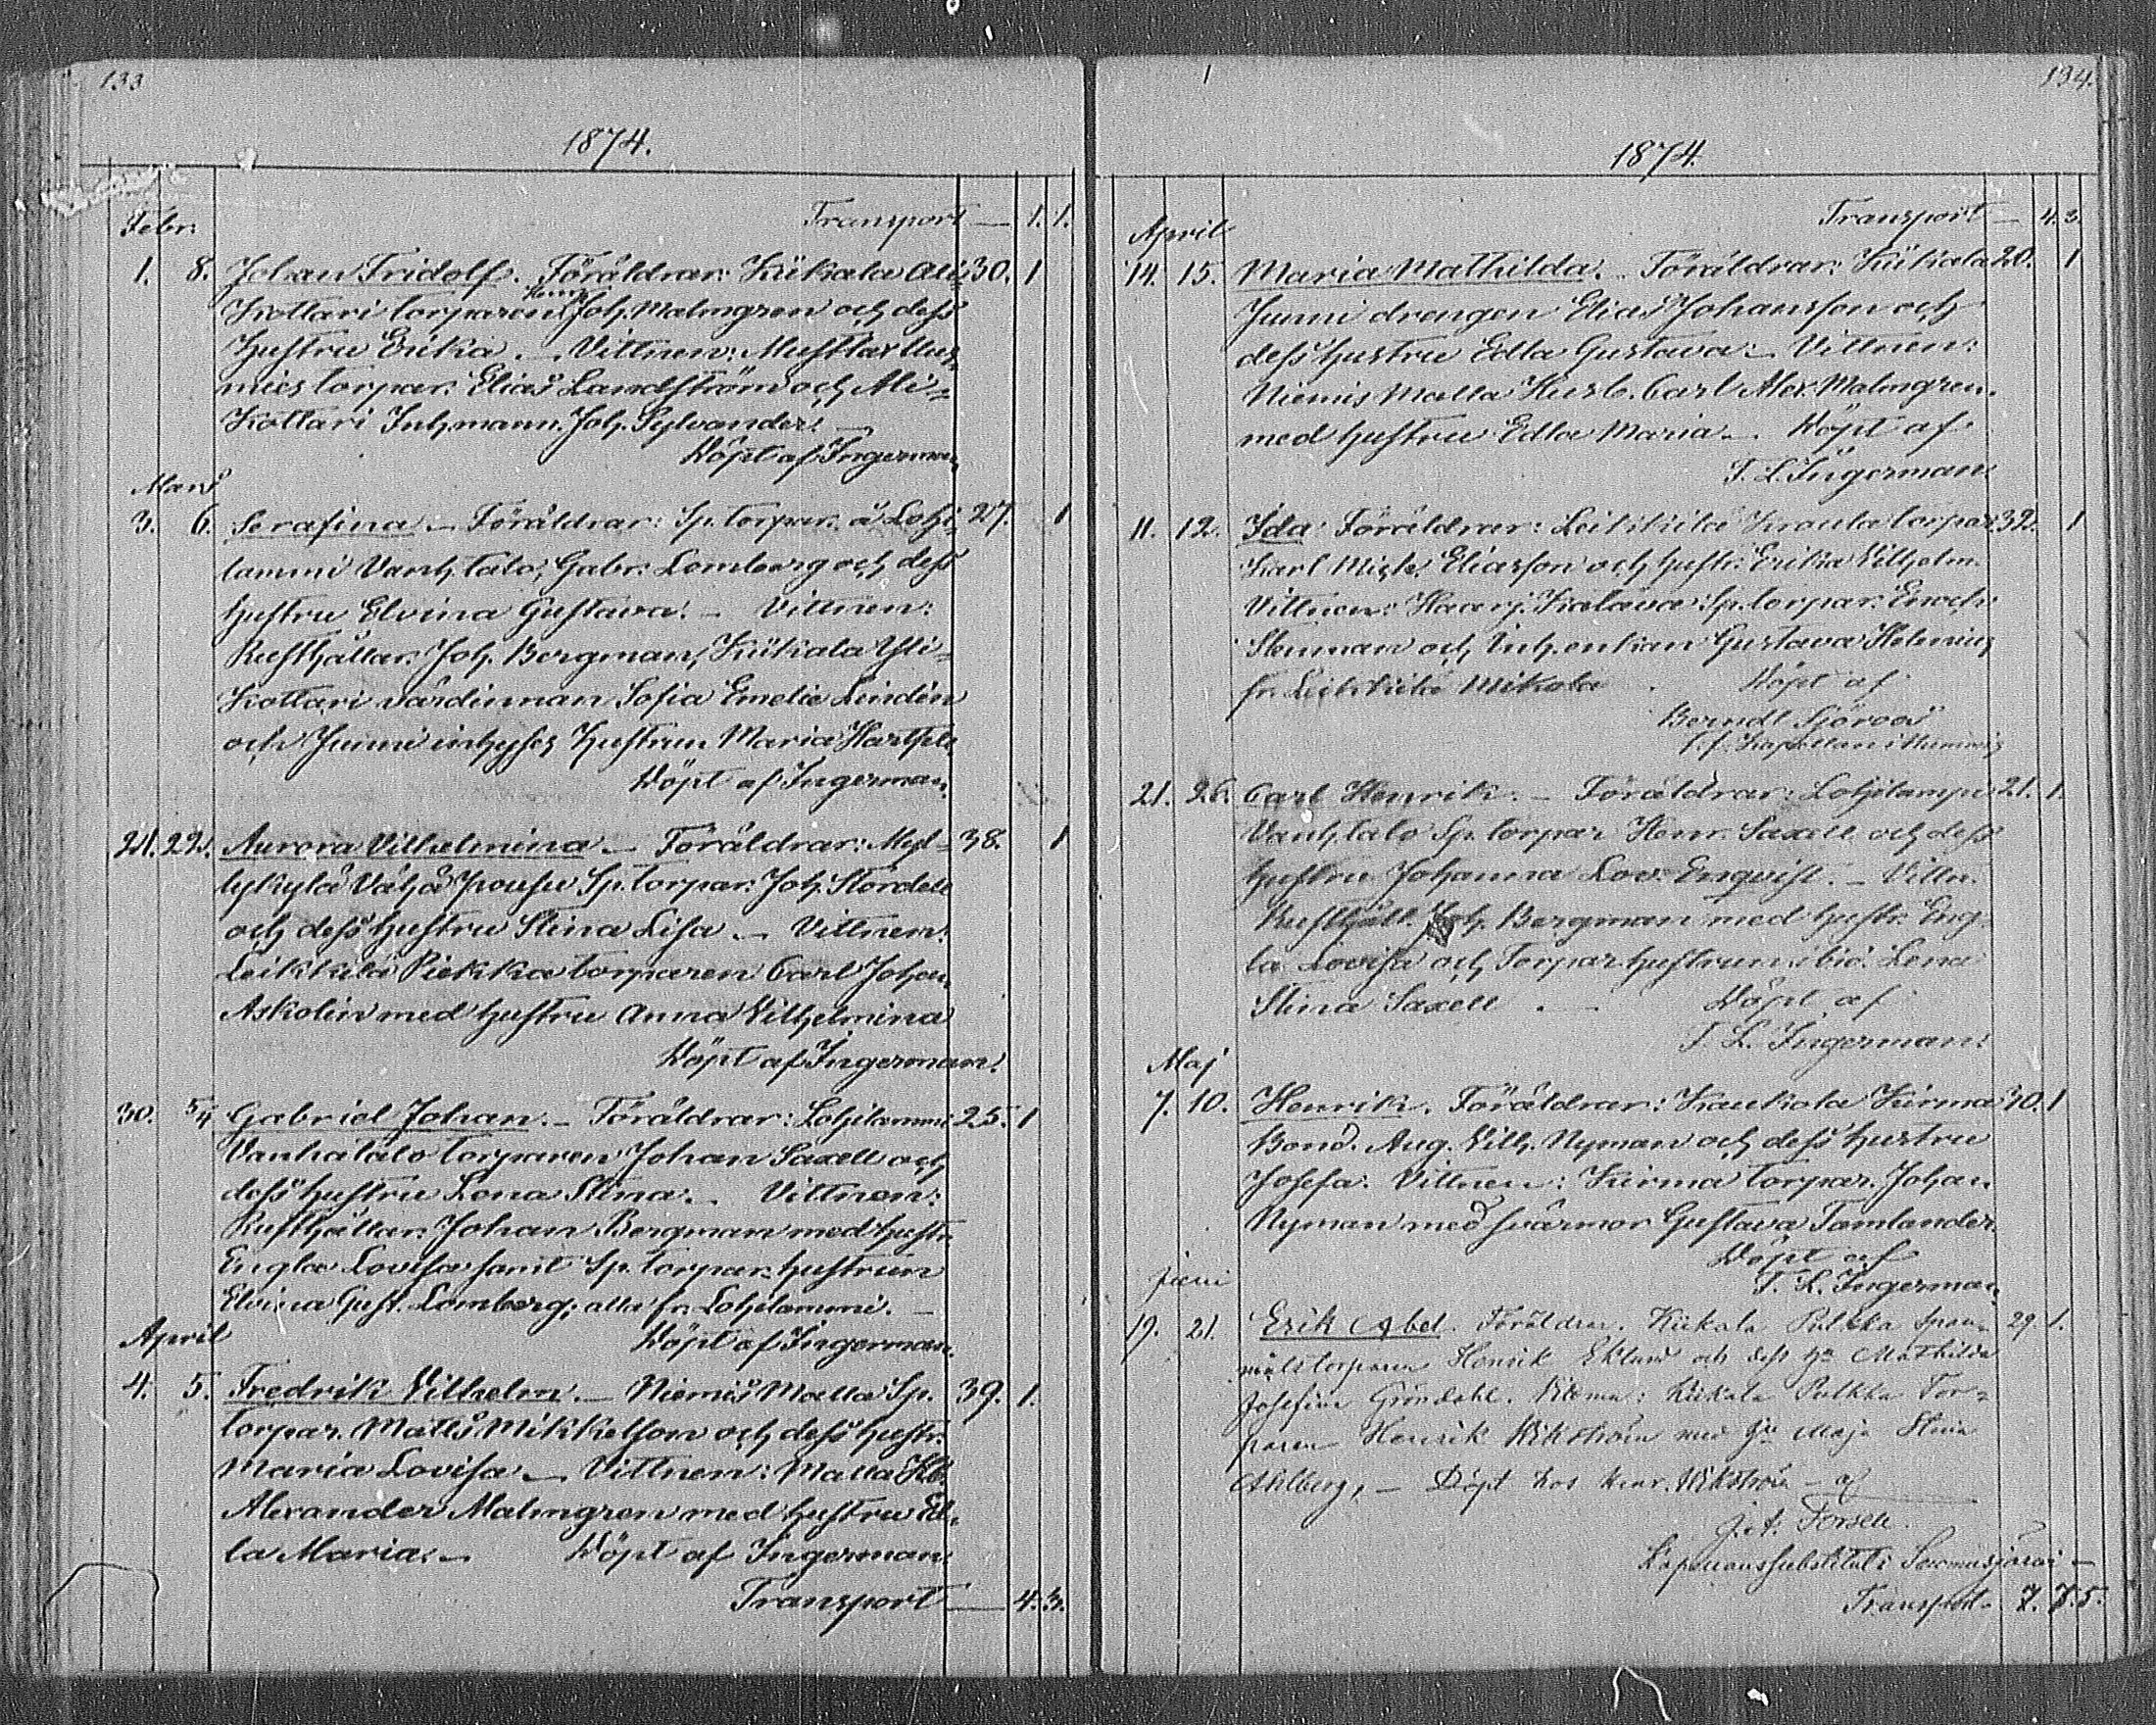 133
1874.
Febr.
Transport — 1. 1.
1. 8. Johan Fridolf. Föräldrar: Kiikala Ali- 30. 1
Kottari torparen Henr. Joh. Malmgren och dess
hustru Erika. — Vittnen: Mustlax
mies torpar. Elias Landström och Ali-
Kottari Inhmann. Joh. Sylvander. —
Döpt af Ingerman
Mars
3. 6. Serafina. — Föräldrar: Sp. torpar. å Lohi- 27. 1
lammi Vanhtalo, Gabr. Lomberg och dess
hustru Elvina Gustava. — Vittnen:
Rusthållar. Joh. Bergman, Kiikala Yli-
Kottari värdinnan Sofia Emelie Lindén
och Junni inhyses hustrun Maria
Döpt af Ingerman.
21. 22. Aurora Vilhelmina. — Föräldrar: Myl- 38. 1
lykylä Vähä Jpousu Sp. torpar. Joh. Stordell
och dess hustru Stina Lisa. — Vittnen:
Leikkilä Piekka torparen Carl Johan
Askolin med hustru Anna Vilhelmina
Döpt af Ingerman.
30. 5/4 Gabriel Johan. — Föräldrar: Lohilammi 25. 1
Vanhatalo torparen Johan Saxell och
dess hustru Lena Stina. — Vittnen:
Rusthållar. Johan Bergman med hustr.
Engla Lovisa samt Sp. torpar. hustrun
Elvina Gust. Lomberg; alla fr. Lohilammi. —
April
Döpt af Ingerman.
4. 5. Fredrik Vilhelm. — Niemis Malla Sp. 39. 1.
torpar. Matts Mikkelson och dess hustr.
Maria Lovisa — Vittnen: Malla Hb.
Alexander Malmgren med hustru Ed-
la Maria. — Döpt af Ingerman
Transport — 4. 3.
134.
1874.
Transport — 4. 3.
April
14. 15. Maria Mathilda. Föräldrar: Kiikala 20. 1
Junni drengen Elias Johansson och
dess hustru Edla Gustava. — Vittnen:
Niemis Malla Husb. Carl Alex. Malmgren
med hustru Edla Maria. Döpt af
F. L. Ingerman.
11. 12. Ida. Föräldrar: Leikkilä torpar. 32. 1
Karl Mich. Eliasson och hustr. Erika Vilhelm.
Vittnen: Haarj. Sp. torpar. Enoch
Stenman och Inh. enkan Gustava Helenius
fr. Leikkilä Mikola. Döpt af
Berndt Sjöroos
21. 26. Carl Henrik. — Föräldrar: Lohilampi 21. 1.
Vanhtalo Sp. torpar Henr. Saxell och dess
hustru Johanna Lov. Enqvist. — Vittn.
Rusthåll. Joh. Bergman med hustr. Eng-
la Lovisa och Torpar hustrun ibid. Lena
Stina Saxell. — Döpt af
F. L. Ingerman.
Maj
7. 10. Henrik. Föräldrar: Kaukola Kirma 30. 1
Bond. Aug. Vilh. Nyman och dess hustru
Josefa. Vittnen: Kirma torpar. Johan
Nyman med svärmor Gustava Tamlander.
Döpt af
F. L. Ingerman.
Juni
19. 21. Erik Abel. Föräldrar. Kiikala Pulkka Span- 29. 1.
målstorparen Henrik Eklund och dess hu Mathilda
Josefina Gröndahl. Vittena: Kiikala Pulkka Tor-
paren Henrik Wikström med hu Maja Stina
Ahlberg, — Döpt hos Henr. Wikström — af
J. A. Forsell.
Kapellanssubstitut i Somerniemi —
Transport. 7. 7. 5.